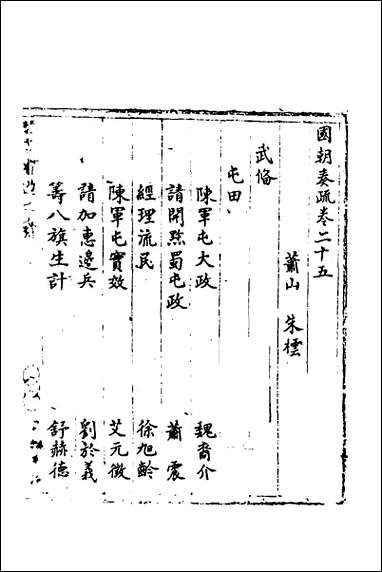 國朝奏疏卷二十五
蕭山 朱橒
武俻
屯田
陳軍屯大政 魏裔介
請開㸃蜀屯政 蕭震
經理流民 徐旭齡
陳軍屯實效 艾元徵
請加惠邊兵 劉於義
籌八旗生計 舒赫德